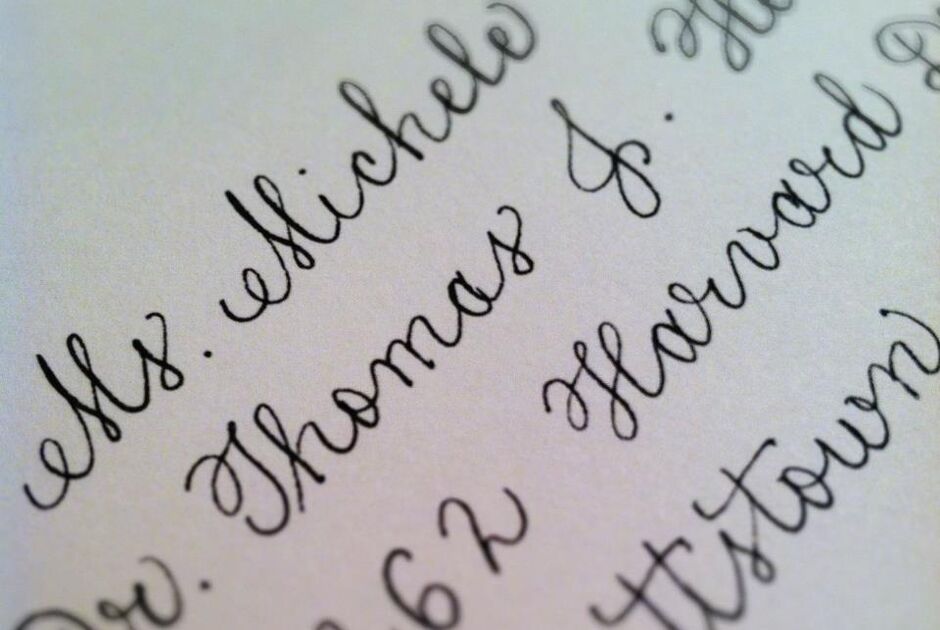 Ms. Michele
Dr. Thomas
62 Harvard
ttstown